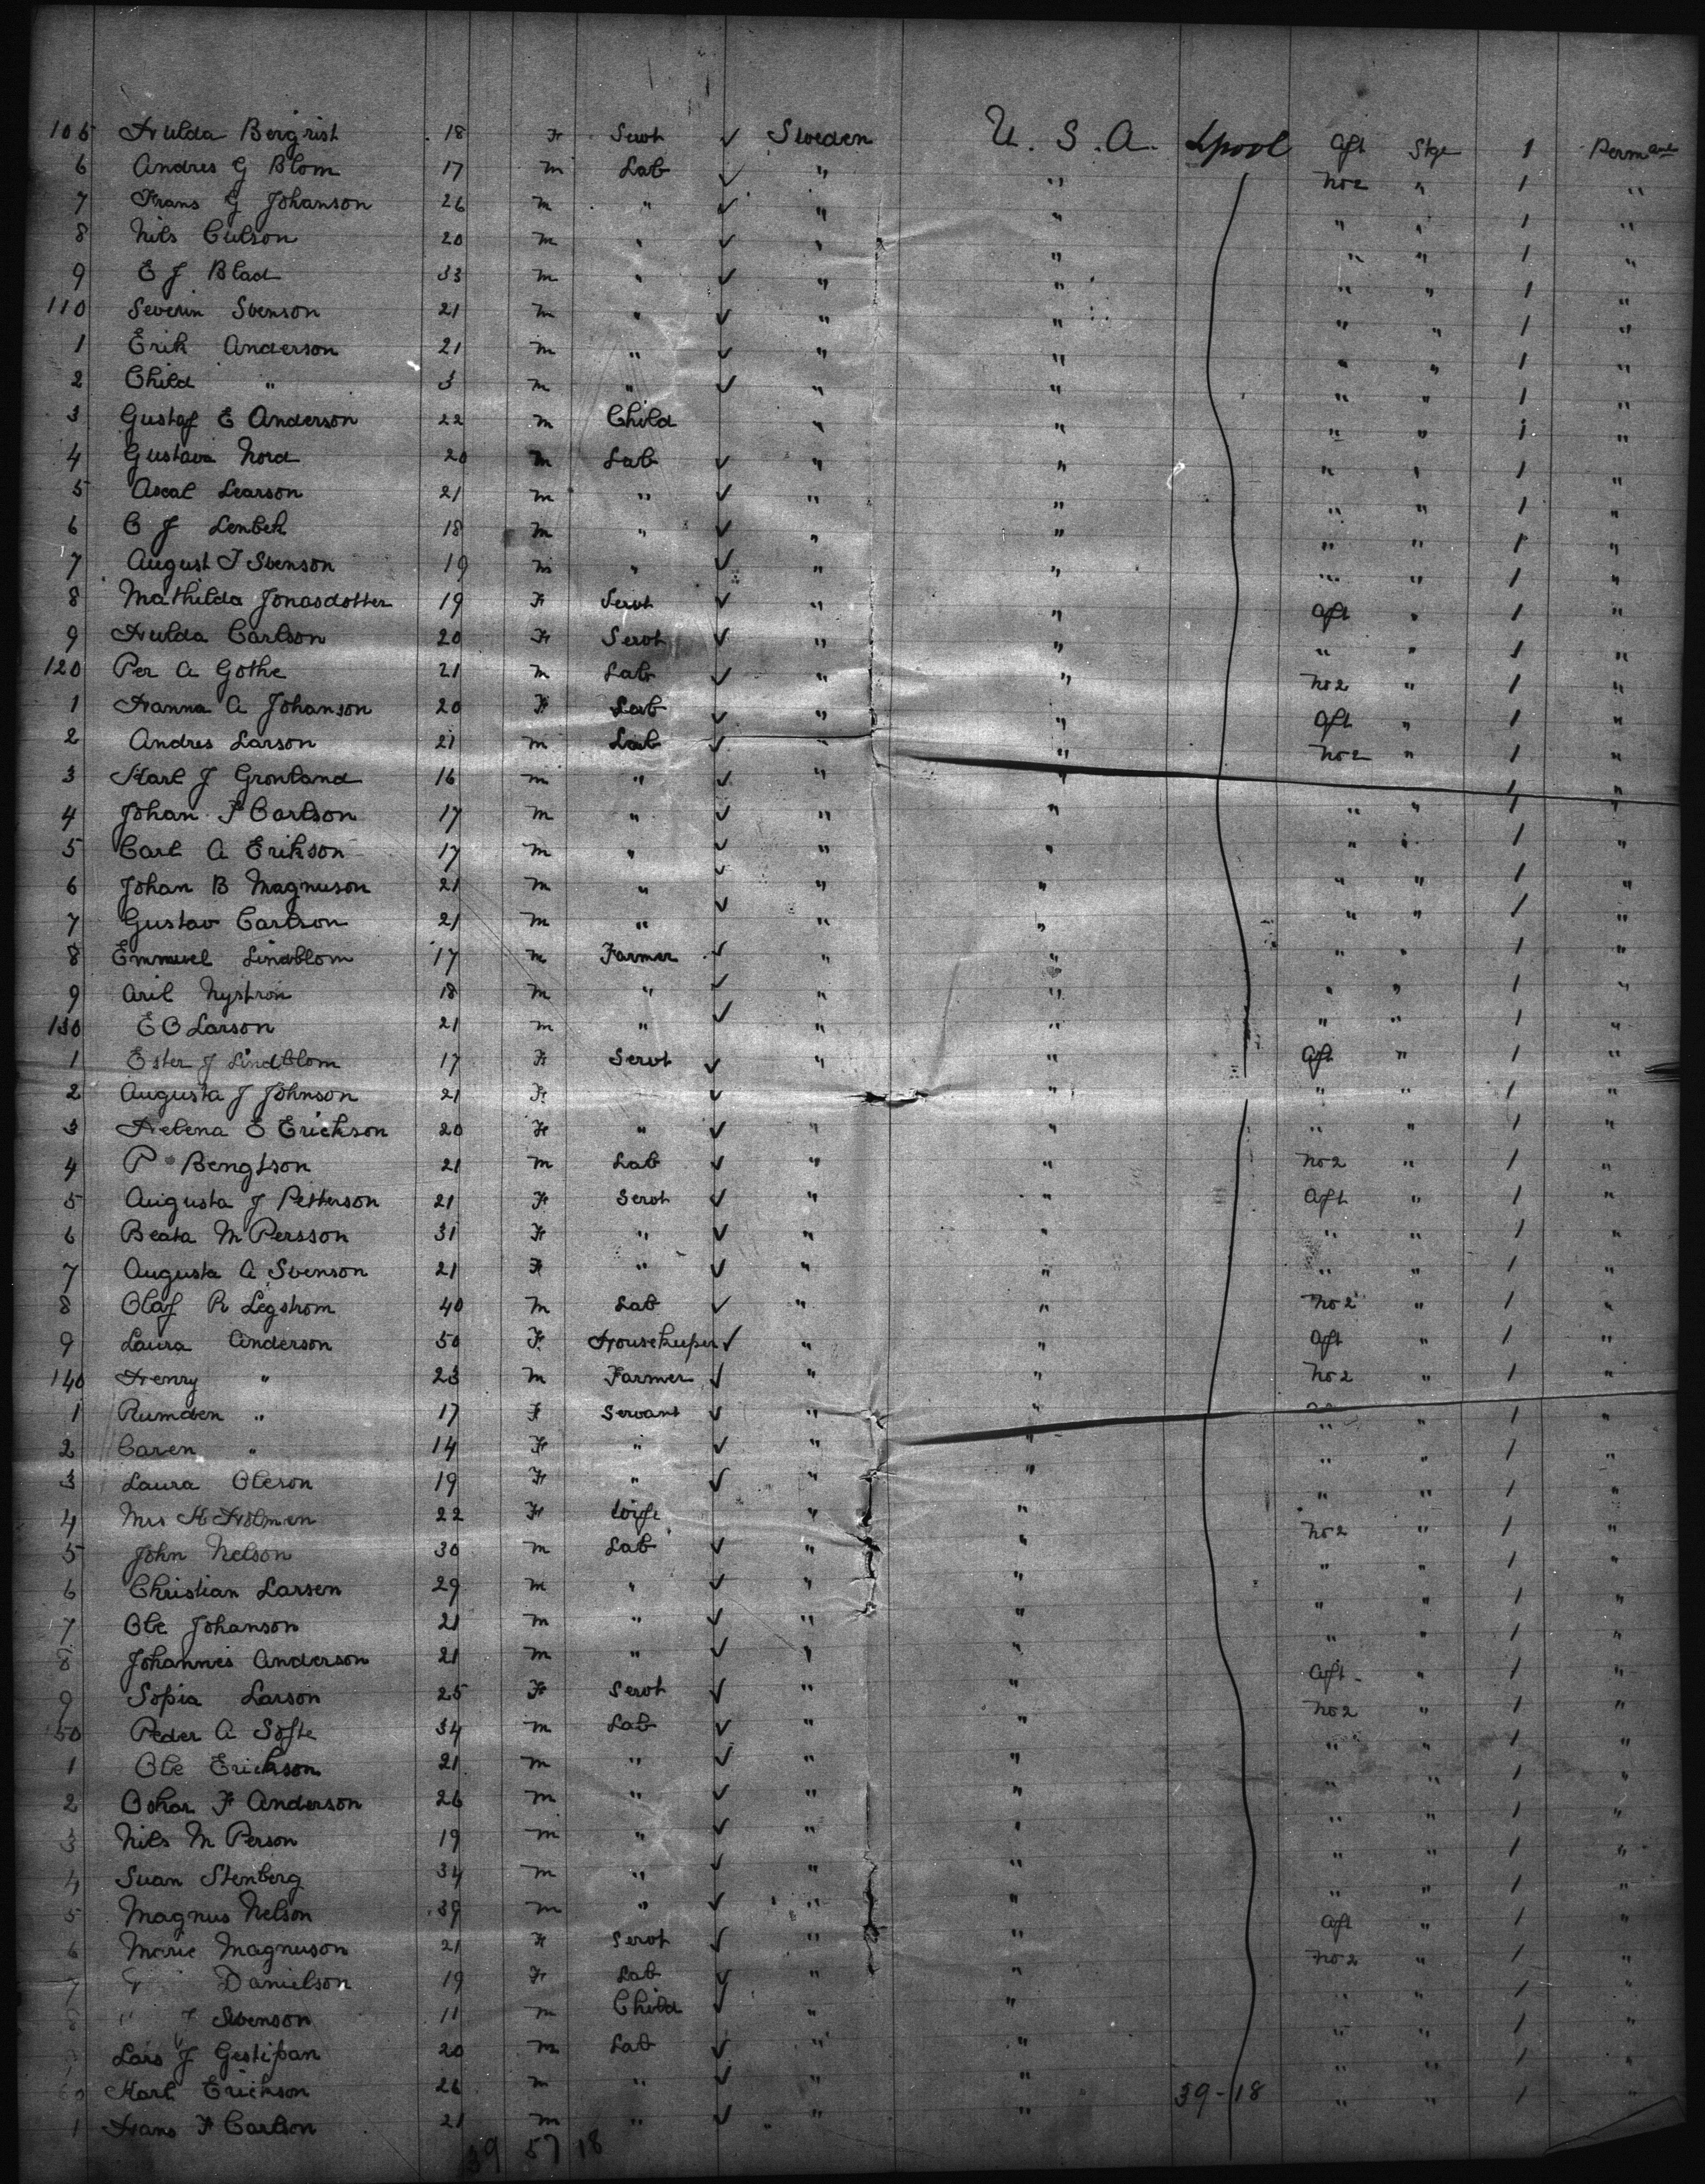 105 Hulda Bergrist 18 F Servt ✓ Sweden U.S.A. Lpool Aft Stge 1 Permant
6 Andres G Blom 17 m Lab ✓ " " No 2 " 1 "
7 Frans G Johanson 26 m " ✓ " " " " 1 "
8 Nils Culson 20 m " ✓ " " " " 1 "
9 E J Blad 33 m " ✓ " " " " 1 "
110 Severin Svenson 21 m " ✓ " " " " 1 "
1 Erik Anderson 21 m " ✓ " " " " 1 "
2 Child " 3 m " ✓ " " " " 1 "
3 Gustaf E Anderson 22 m Child " " " " 1 "
4 Gustava Nord 20 m Lab ✓ " " " " 1 "
5 Axal Learson 21 m " ✓ " " " " 1 "
6 C J Lenbek 18 m " ✓ " " " " 1 "
7 August J Svenson 19 m " ✓ " " " " 1 "
8 Mathilda Jonasdotter 19 F Servt ✓ " " Aft " 1 "
9 Hulda Carlson 20 F Servt ✓ " " " " 1 "
120 Per A Gothe 21 m Lab ✓ " " No 2 " 1 "
1 Hanna A Johanson 20 F Lab ✓ " " Aft " 1 "
2 Andres Larson 21 m Lab ✓ " " No 2 " 1 "
3 Karl J Gronland 16 m " ✓ " " 1 "
4 Johan F Carlson 17 m " ✓ " " " " 1 "
5 Carl A Erikson 17 m " ✓ " " " " 1 "
6 Johan B Magnuson 21 m " ✓ " " " " 1 "
7 Gustav Carlson 21 m " ✓ " " " " 1 "
8 Emmuel Lindblom 17 m Farmer ✓ " " " " 1 "
9 Aril Nystron 18 m " ✓ " " " " 1 "
130 E O Larson 21 m " ✓ " " " " 1 "
1 Ester J Lindblom 17 F Servt ✓ " " Aft " 1 "
2 Augusta J Johnson 21 F ✓ " " " 1 "
3 Helena E Erickson 20 F " ✓ " " " " 1 "
4 P Bengtson 21 m Lab ✓ " " No 2 " 1 "
5 Augusta J Petterson 21 F Servt ✓ " " Aft " 1 "
6 Beata M Persson 31 F " ✓ " " " " 1 "
7 Augusta A Svenson 21 F " ✓ " " " " 1 "
8 Olaf R Legstrom 40 m Lab ✓ " " No 2 " 1 "
9 Laura Anderson 50 F Housekeeper ✓ " " Aft " 1 "
140 Henry " 23 m Farmer ✓ " " No 2 " 1 "
1 Rumden " 17 F Servant ✓ " " " " 1 "
2 Caren " 14 F " ✓ " " " " 1 "
3 Laura Oleson 19 F " ✓ " " " " 1 "
4 Mrs K Holmen 22 F Wife " " No 2 " 1 "
5 John Nelson 30 m Lab ✓ " " " " 1 "
6 Christian Larsen 29 m " ✓ " " " " 1 "
7 Ole Johanson 21 m " ✓ " " " " 1 "
8 Johannes Anderson 21 m " ✓ " " Aft " 1 "
9 Sopia Larson 25 F Servt ✓ " " No 2 " 1 "
50 Peder A Softe 34 m Lab ✓ " " " " 1 "
1 Ole Erickson 21 m " ✓ " " " " 1 "
2 Oskar F Anderson 26 m " ✓ " " " " 1 "
3 Nils M Person 19 m " ✓ " " " " 1 "
4 Suan Stenberg 34 m " ✓ " " " " 1 "
5 Magnus Nelson 39 m " ✓ " " Aft " 1 "
6 Marie Magnuson 21 F Servt ✓ " " No 2 " 1 "
7 Danielson 19 F Lab ✓ " " " " 1 "
8 " J Svenson 11 m Child ✓ " " " " 1 "
Lars J Gestipan 20 m Lab ✓ " " " " 1 "
60 Karl Erickson 26 m " ✓ " " 39-18 " " 1 "
1 Frans F Carlson 21 m " ✓ " "
39 57 18